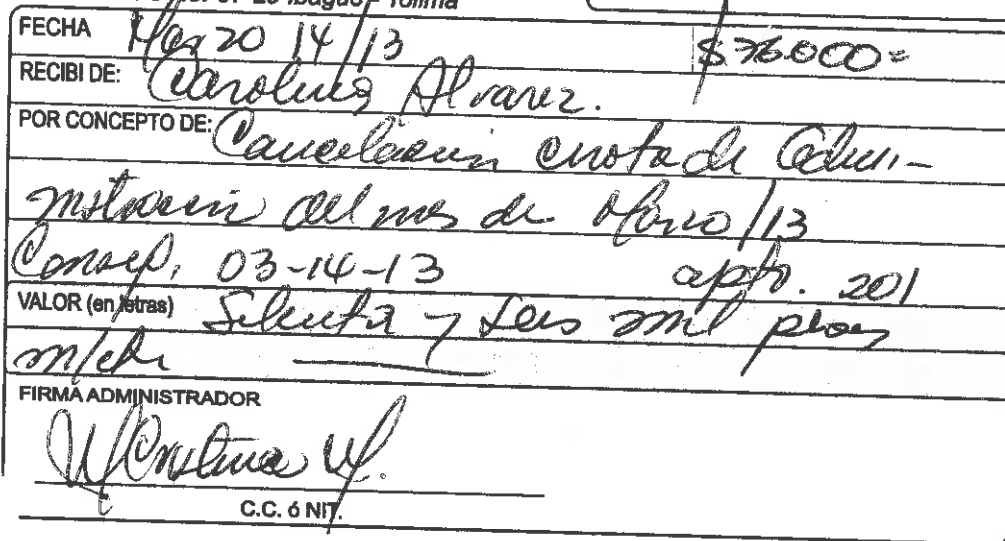 Ibagué - Tolima
FECHA Marzo 14/13 $76.000=
RECIBI DE: Carolina Alvarez.
POR CONCEPTO DE: Cancelación cuota de Admi-
nistración del mes de Marzo/13
Consep. 03-14-13 apto. 201
VALOR (en letras) Setenta y Seis mil pesos
m/cte
FIRMA ADMINISTRADOR
C.C. ó NIT.